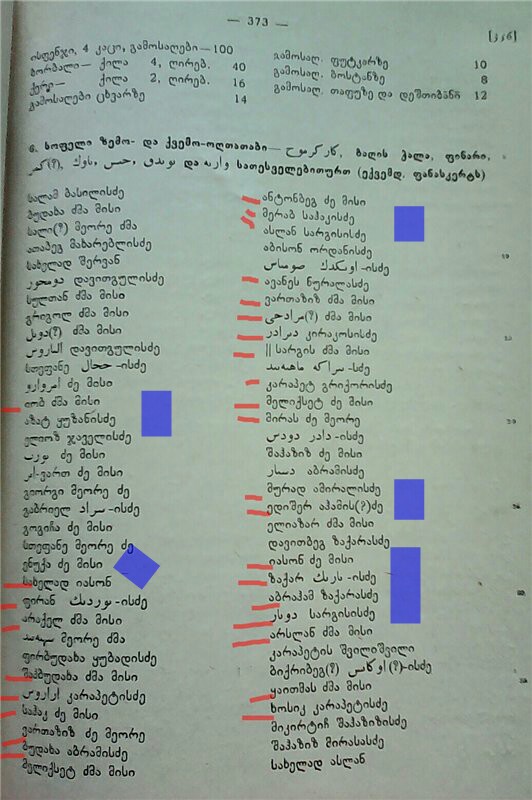 — 373 —
ისფენჯი, 4 კაცი, გამოსაღები—100
ბორბალი— ქილა 4, ღირებ. 40
ქერი— ქილა 2, ღირებ. 16
გამოსაღები ცხვარზე 14
გამოსაღ. ფუტკარზე 10
გამოსაღ. ბოსტანზე 8
გამოსაღ. თაფუზე და დეშთიბანზე 12
6. სოფელი ზემო- და ქვემო-ოღთათაბი— ბაღის ჭალა, ფინარი,
სათესველებითურთ (ექვემდ. ფანასკერტს)
სალამ ბასილისძე
ბუდახა ძმა მისი
სალი(?) მეორე ძმა
ათაბეგ მახარებლისძე
სახელად შერვან
دومجور დავითგულისძე
სულთან ძმა მისი
გრიგოლ ძმა მისი
دویل(?) ძმა მისი
الباروس დავითგულისძე
სთეფანე ججال -ისძე
امروارو ძე მისი
იობ ძმა მისი
აზატ ყუზანისძე
ელიოზ ჯაველისძე
بورب ძე მისი
ვართ ძმა მისი
გიორგი მეორე ძე
გაბრიელ سراد -ისძე
გოგიჩა ძე მისი
სთეფანე მეორე ძე
ენუქა ძე მისი
სახელად იასონ
ფირან نوردىك -ისძე
არაქელ ძმა მისი
მეორე ძმა
ფირბუდახა ყუბადისძე
შაჰბუდახა ძმა მისი
اراروس კარაპეტისძე
საჰაკ ძე მისი
ვართაზიზ ძე მეორე
ბუდახა აბრამისძე
მელიქსეტ ძმა მისი
ანტონბეგ ძე მისი
მერაბ საჰაკისძე
ასლან სარგისისძე
აბისონ ორდანისძე
اوىكدك صوماس -ისძე
ავანეს ნურალასძე
ვართაზიზ ძმა მისი
مرادجى(?) ძმა მისი
دىرادر კირაკოსისძე
|| სარგის ძმა მისი
-სძე
კარაპეტ გრიქორისძე
მელიქსეტ ძე მისი
მირას ძე მეორე
دادر دودس -ისძე
შაჰაზიზ ძე მისი
دسىار აბრამისძე
მურად ამირალისძე
ედიშერ აჰამის(?)ძე
ელიაზარ ძმა მისი
დავითბეგ ზაქარასძე
იასონ ძე მისი
ზაქარ نارىك -ისძე
აბრაჰამ ზაქარასძე
دوىىار სარგისისძე
არსლან ძმა მისი
კარაპეტის შვილიშვილი
ბიქრიბეგ(?) اوكاىس(?)-ისძე
ყაითმას ძმა მისი
ხოსიკ კარაპეტისძე
მიკირტიჩ შაჰაზიზისძე
შაჰაზიზ მირასასძე
სახელად ასლან